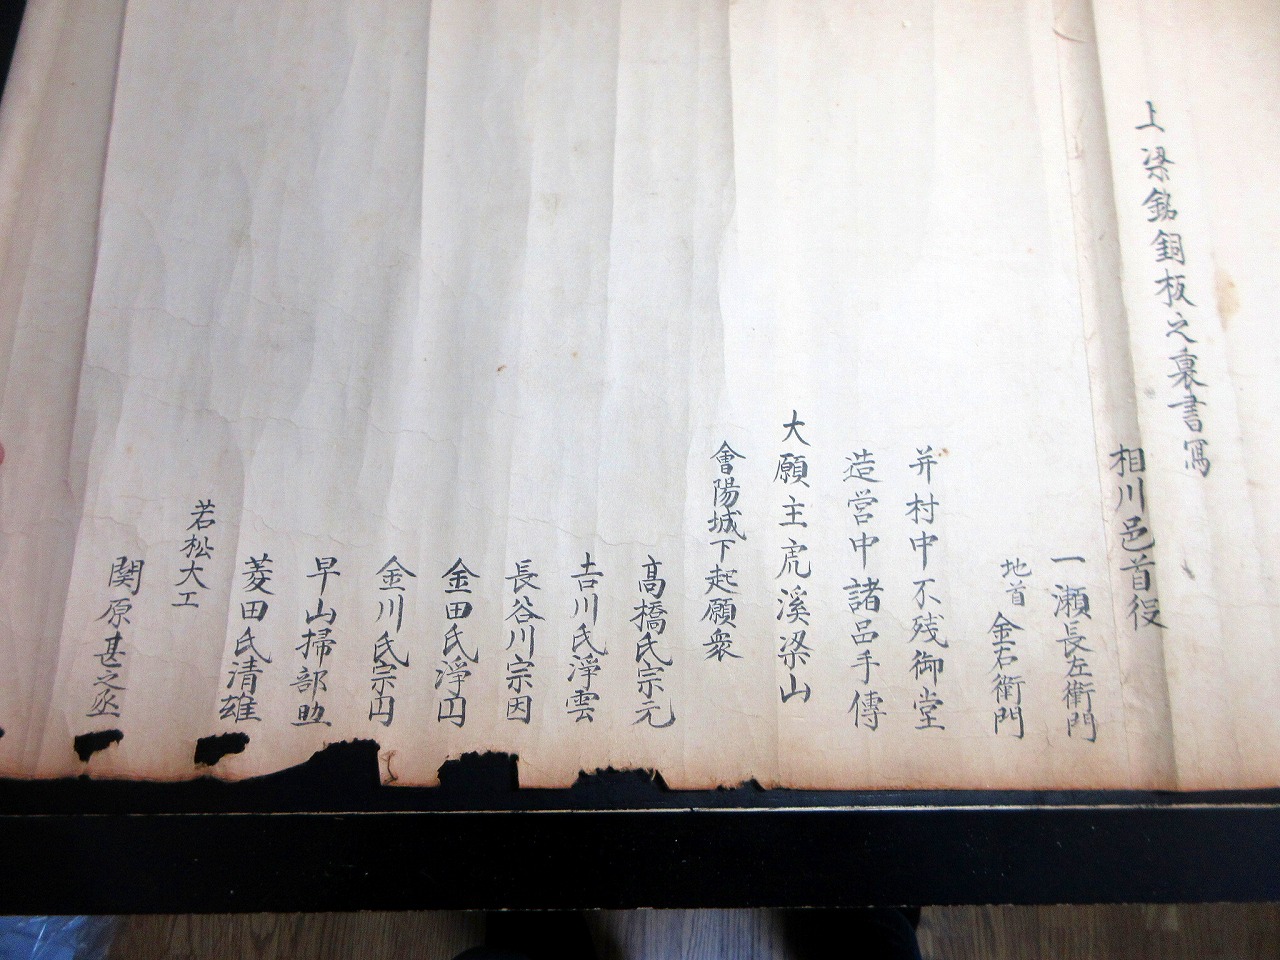 上梁銘銅板之裏書寫
相川邑首役
一瀬長左衛門
地首 金右衛門
并村中不残御堂
造営中諸呂手傳
大願主虎溪梁山
會陽城下起願衆
髙橋氏宗元
吉川氏淨雲
長谷川宗因
金田氏淨円
金川氏宗円
早山掃部助
菱田氏清雄
若松大工
関原甚之丞